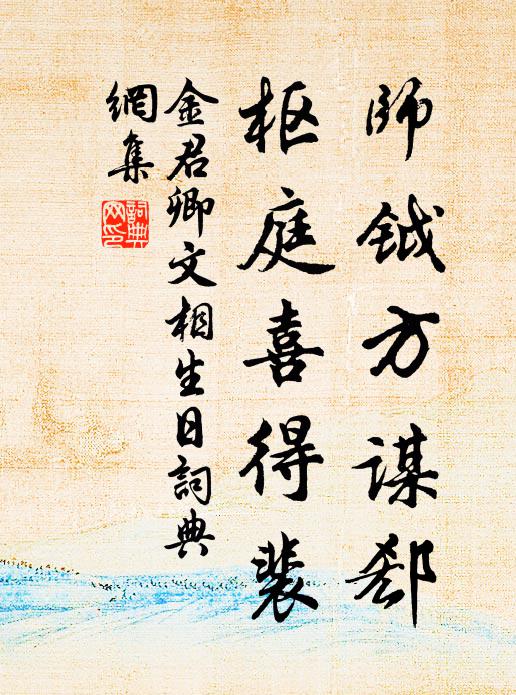 師鉞方謀郄
枢庭喜得裴
金君卿文相生日詞典
網集
詞典網印